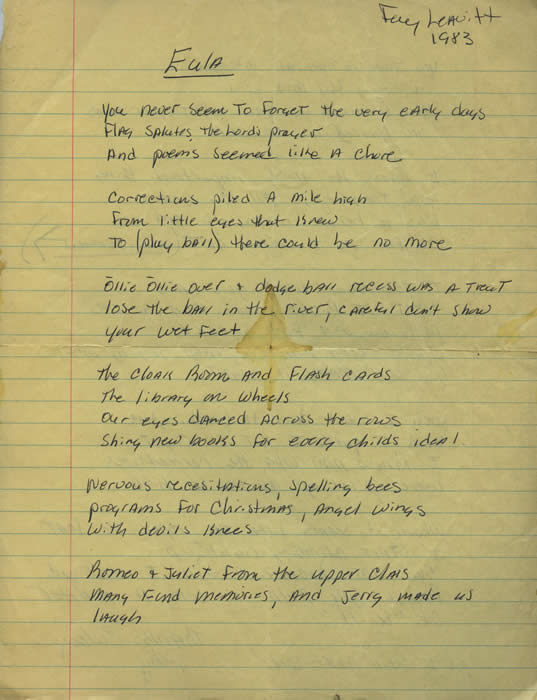 Fay Leavitt
1983
Eula
You never seem to forget the very early days
Flag Salutes, the Lord's prayer
And poems seemed like A chore
Corrections piled A mile high
From little eyes that knew
To (play ball) there could be no more
Ollie Ollie over + dodge ball recess was A Treat
lose the ball in the river, careful don't show
your wet feet
The Cloak Room And Flash Cards
The library on wheels
Our eyes danced Across the rows
Shiny new books for every childs ideal
Nervous recesitations, spelling bees
programs for Christmas, Angel wings
with devils knees
Romeo & Juliet from the upper class
Many Fond memories, And Jerry made us
laugh